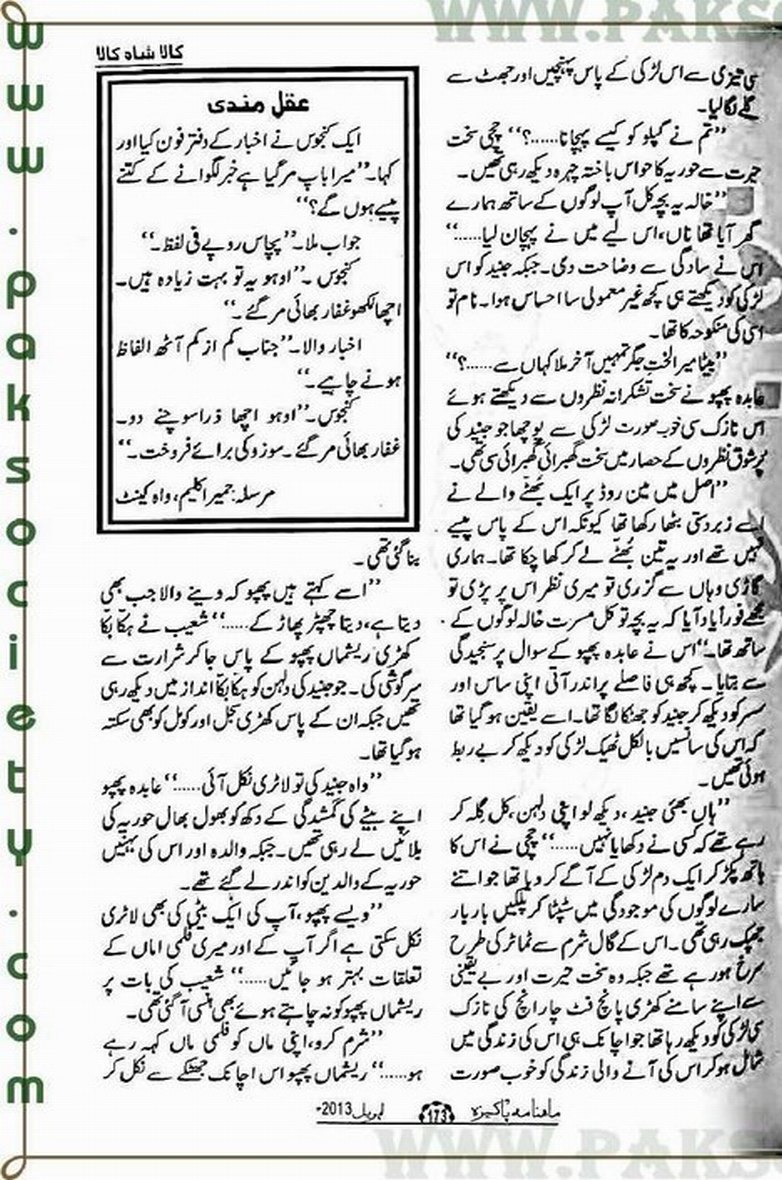 WWW.PAKSO
کالا شاہ کالا
سی تیزی سے اس لڑکی کے پاس پہنچیں اور جھٹ سے
گلے لگا لیا۔
’’تم نے گپلو کو کیسے پہچانا......؟‘‘ چچی سخت
حیرت سے حوریہ کا حواس باختہ چہرہ دیکھ رہی تھیں۔
’’خالہ یہ بچہ کل آپ لوگوں کے ساتھ ہمارے
گھر آیا تھا ناں، اس لیے میں نے پہچان لیا......‘‘
اس نے سادگی سے وضاحت دی۔ جبکہ جنید کو اس
لڑکی کو دیکھتے ہی کچھ غیر معمولی سا احساس ہوا۔ نام تو
اسی کی منکوحہ کا تھا۔
’’بیٹا میرا لختِ جگر تمہیں آخر ملا کہاں سے......؟‘‘
عابدہ پھپو نے سخت تشکرانہ نظروں سے دیکھتے ہوئے
اس نازک سی خوب صورت لڑکی سے پوچھا جو جنید کی
پُرشوق نظروں کے حصار میں سخت گھبرائی گھبرائی سی تھی۔
’’اصل میں مین روڈ پر ایک بھٹے والے نے
اسے زبردستی بٹھا رکھا تھا کیونکہ اس کے پاس پیسے
نہیں تھے اور یہ تین بھٹے لے کر کھا چکا تھا۔ ہماری
گاڑی وہاں سے گزری تو میری نظر اس پر پڑی تو
مجھے فوراً یاد آیا کہ یہ بچہ تو کل مسرت خالہ لوگوں کے
ساتھ تھا۔‘‘ اس نے عابدہ پھپو کے سوال پر سنجیدگی
سے بتایا۔ کچھ ہی فاصلے پر اندر آتی اپنی ساس اور
سسر کو دیکھ کر جنید کو جھٹکا لگا تھا۔ اسے یقین ہو گیا تھا
کہ اس کی سانسیں بالکل ٹھیک لڑکی کو دیکھ کر بے ربط
ہوئی تھیں۔
’’ہاں بھئی جنید، دیکھ لو اپنی دلہن، کل گلہ کر
رہے تھے کہ کسی نے دکھایا نہیں......‘‘ چچی نے اس کا
ہاتھ پکڑ کر ایک دم لڑکی کے آگے کر دیا تھا جو اتنے
سارے لوگوں کی موجودگی میں سٹپٹا کر پلکیں بار بار
جھپک رہی تھی۔ اس کے گال شرم سے ٹماٹر کی طرح
سرخ ہو رہے تھے جبکہ وہ سخت حیرت اور بے یقینی
سے اپنے سامنے کھڑی پانچ فٹ چار انچ کی نازک
سی لڑکی کو دیکھ رہا تھا جو اچانک ہی اس کی زندگی میں
شامل ہو کر اس کی آنے والی زندگی کو خوب صورت
عقل مندی
ایک کنجوس نے اخبار کے دفتر فون کیا اور
کہا۔ ’’میرا باپ مر گیا ہے خبر لگوانے کے کتنے
پیسے ہوں گے؟‘‘
جواب ملا۔ ’’پچاس روپے فی لفظ۔‘‘
کنجوس۔ ’’اوہو یہ تو بہت زیادہ ہیں۔
اچھا لکھو غفار بھائی مر گئے۔‘‘
اخبار والا۔ ’’جناب کم از کم آٹھ الفاظ
ہونے چاہیے۔‘‘
کنجوس۔ ’’اوہو اچھا ذرا سوچنے دو۔
غفار بھائی مر گئے۔ سوزوکی برائے فروخت۔‘‘
مرسلہ: حمیرا کلیم، واہ کینٹ
بنا گئی تھی۔
’’اسے کہتے ہیں پھپو کہ دینے والا جب بھی
دیتا ہے، دیتا چھپڑ پھاڑ کے......‘‘ شعیب نے ہکا بکا
کھڑی ریشماں پھپو کے پاس جا کر شرارت سے
سرگوشی کی۔ جو جنید کی دلہن کو ہکا بکا انداز میں دیکھ رہی
تھیں جبکہ ان کے پاس کھڑی سجل اور کومل کو بھی سکتہ
ہو گیا تھا۔
’’واہ جنید کی تو لاٹری نکل آئی......‘‘ عابدہ پھپو
اپنے بیٹے کی گمشدگی کے دکھ کو بھول بھال حوریہ کی
بلائیں لے رہی تھیں۔ جبکہ والدہ اور اس کی بہنیں
حوریہ کے والدین کو اندر لے گئے تھے۔
’’ویسے پھپو، آپ کی ایک بیٹی کی بھی لاٹری
نکل سکتی ہے اگر آپ کے اور میری فلمی اماں کے
تعلقات بہتر ہو جائیں......‘‘ شعیب کی بات پر
ریشماں پھپو کو نہ چاہتے ہوئے بھی ہنسی آ گئی تھی۔
’’شرم کرو، اپنی ماں کو فلمی ماں کہہ رہے
ہو......‘‘ ریشماں پھپو اس اچانک جھٹکے سے نکل کر
ماہنامہ پاکیزہ 173 اپریل 2013ء
www.paksociety.com
WWW.PAKS